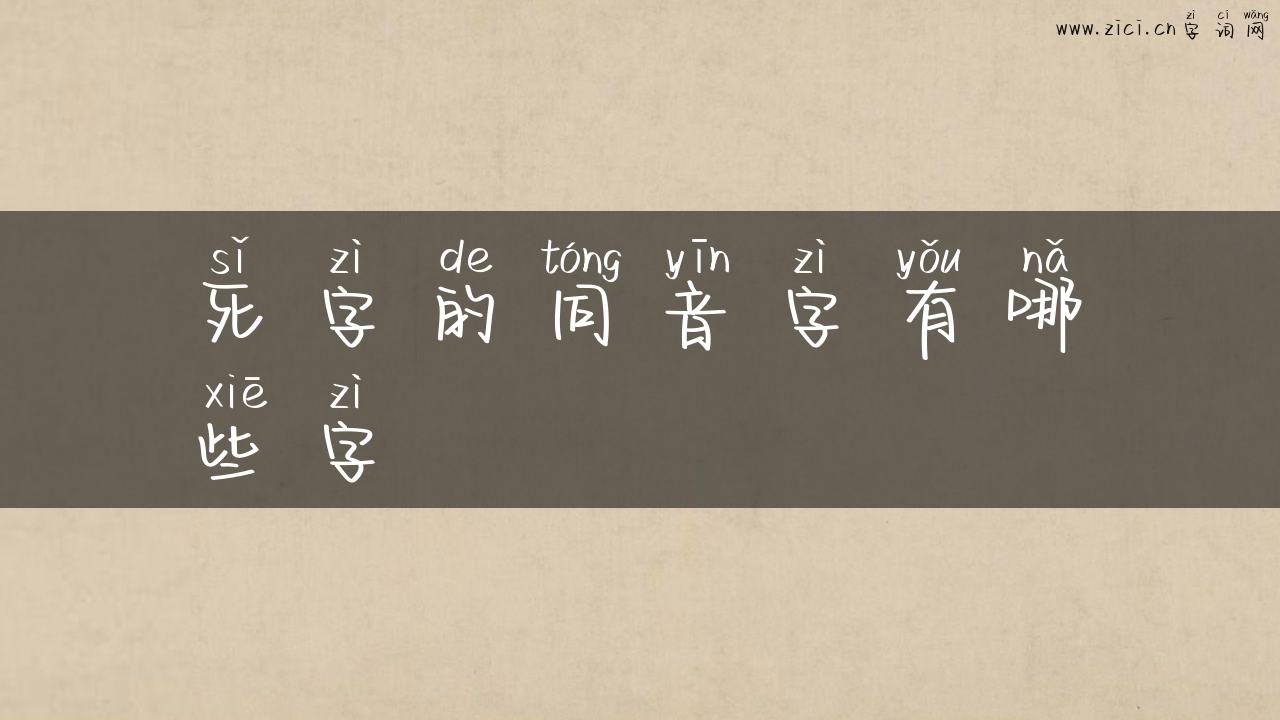 zì cí wǎng
www.zici.cn 字词网
sǐ zì de tóng yīn zì yǒu nǎ
死字的同音字有哪
xiē zì
些字